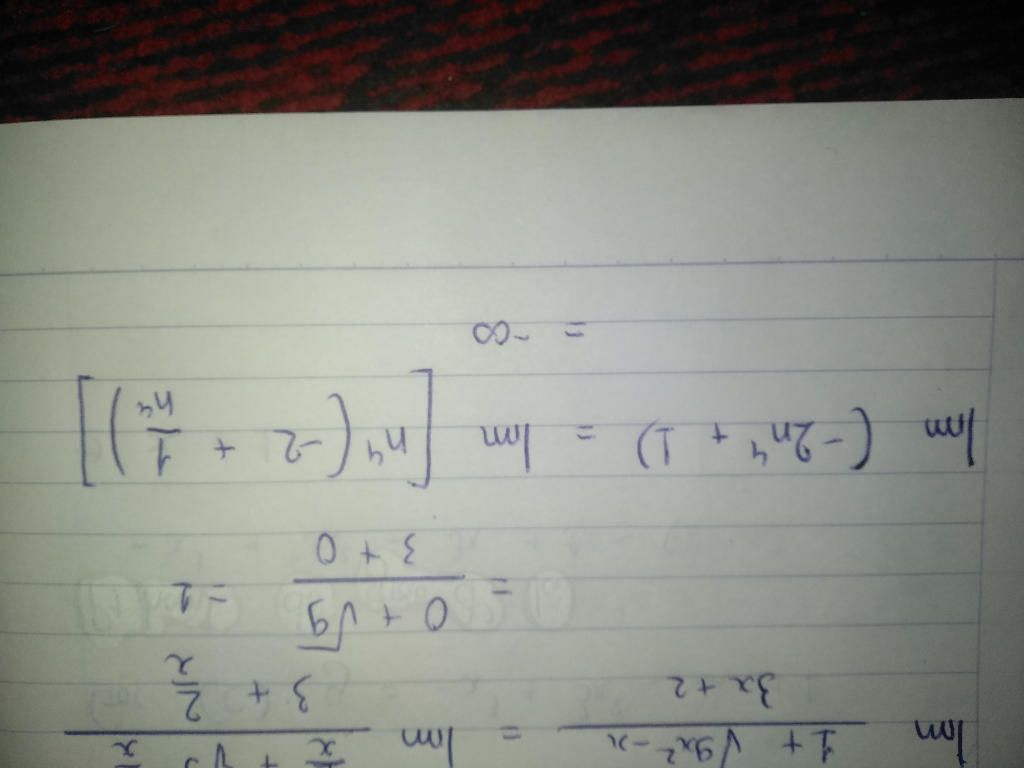 lim (1 + √(9x² - x)) / (3x + 2) = lim (1/x + √9 ...) / (3 + 2/x)
= (0 + √9) / (3 + 0) = 1
lim (-2n⁴ + 1) = lim [n⁴(-2 + 1/n⁴)]
= -∞